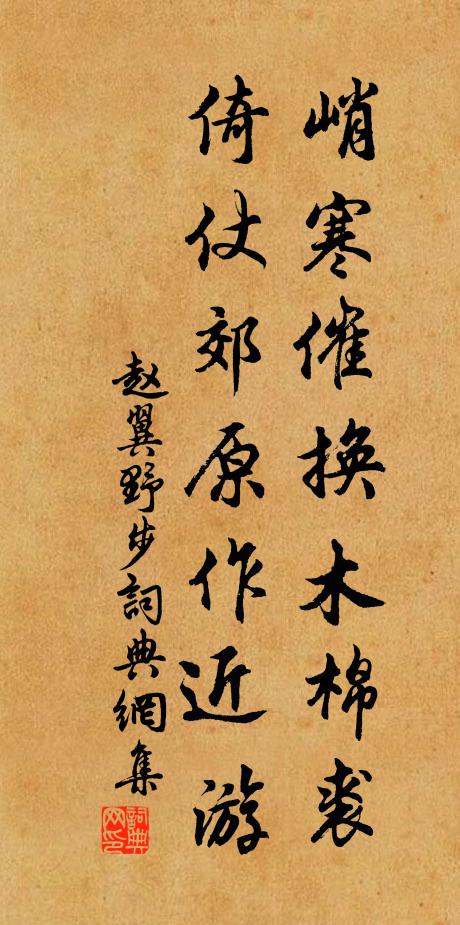 峭寒催換木棉裘
倚仗郊原作近游
赵翼野步詞典網集
詞典网印